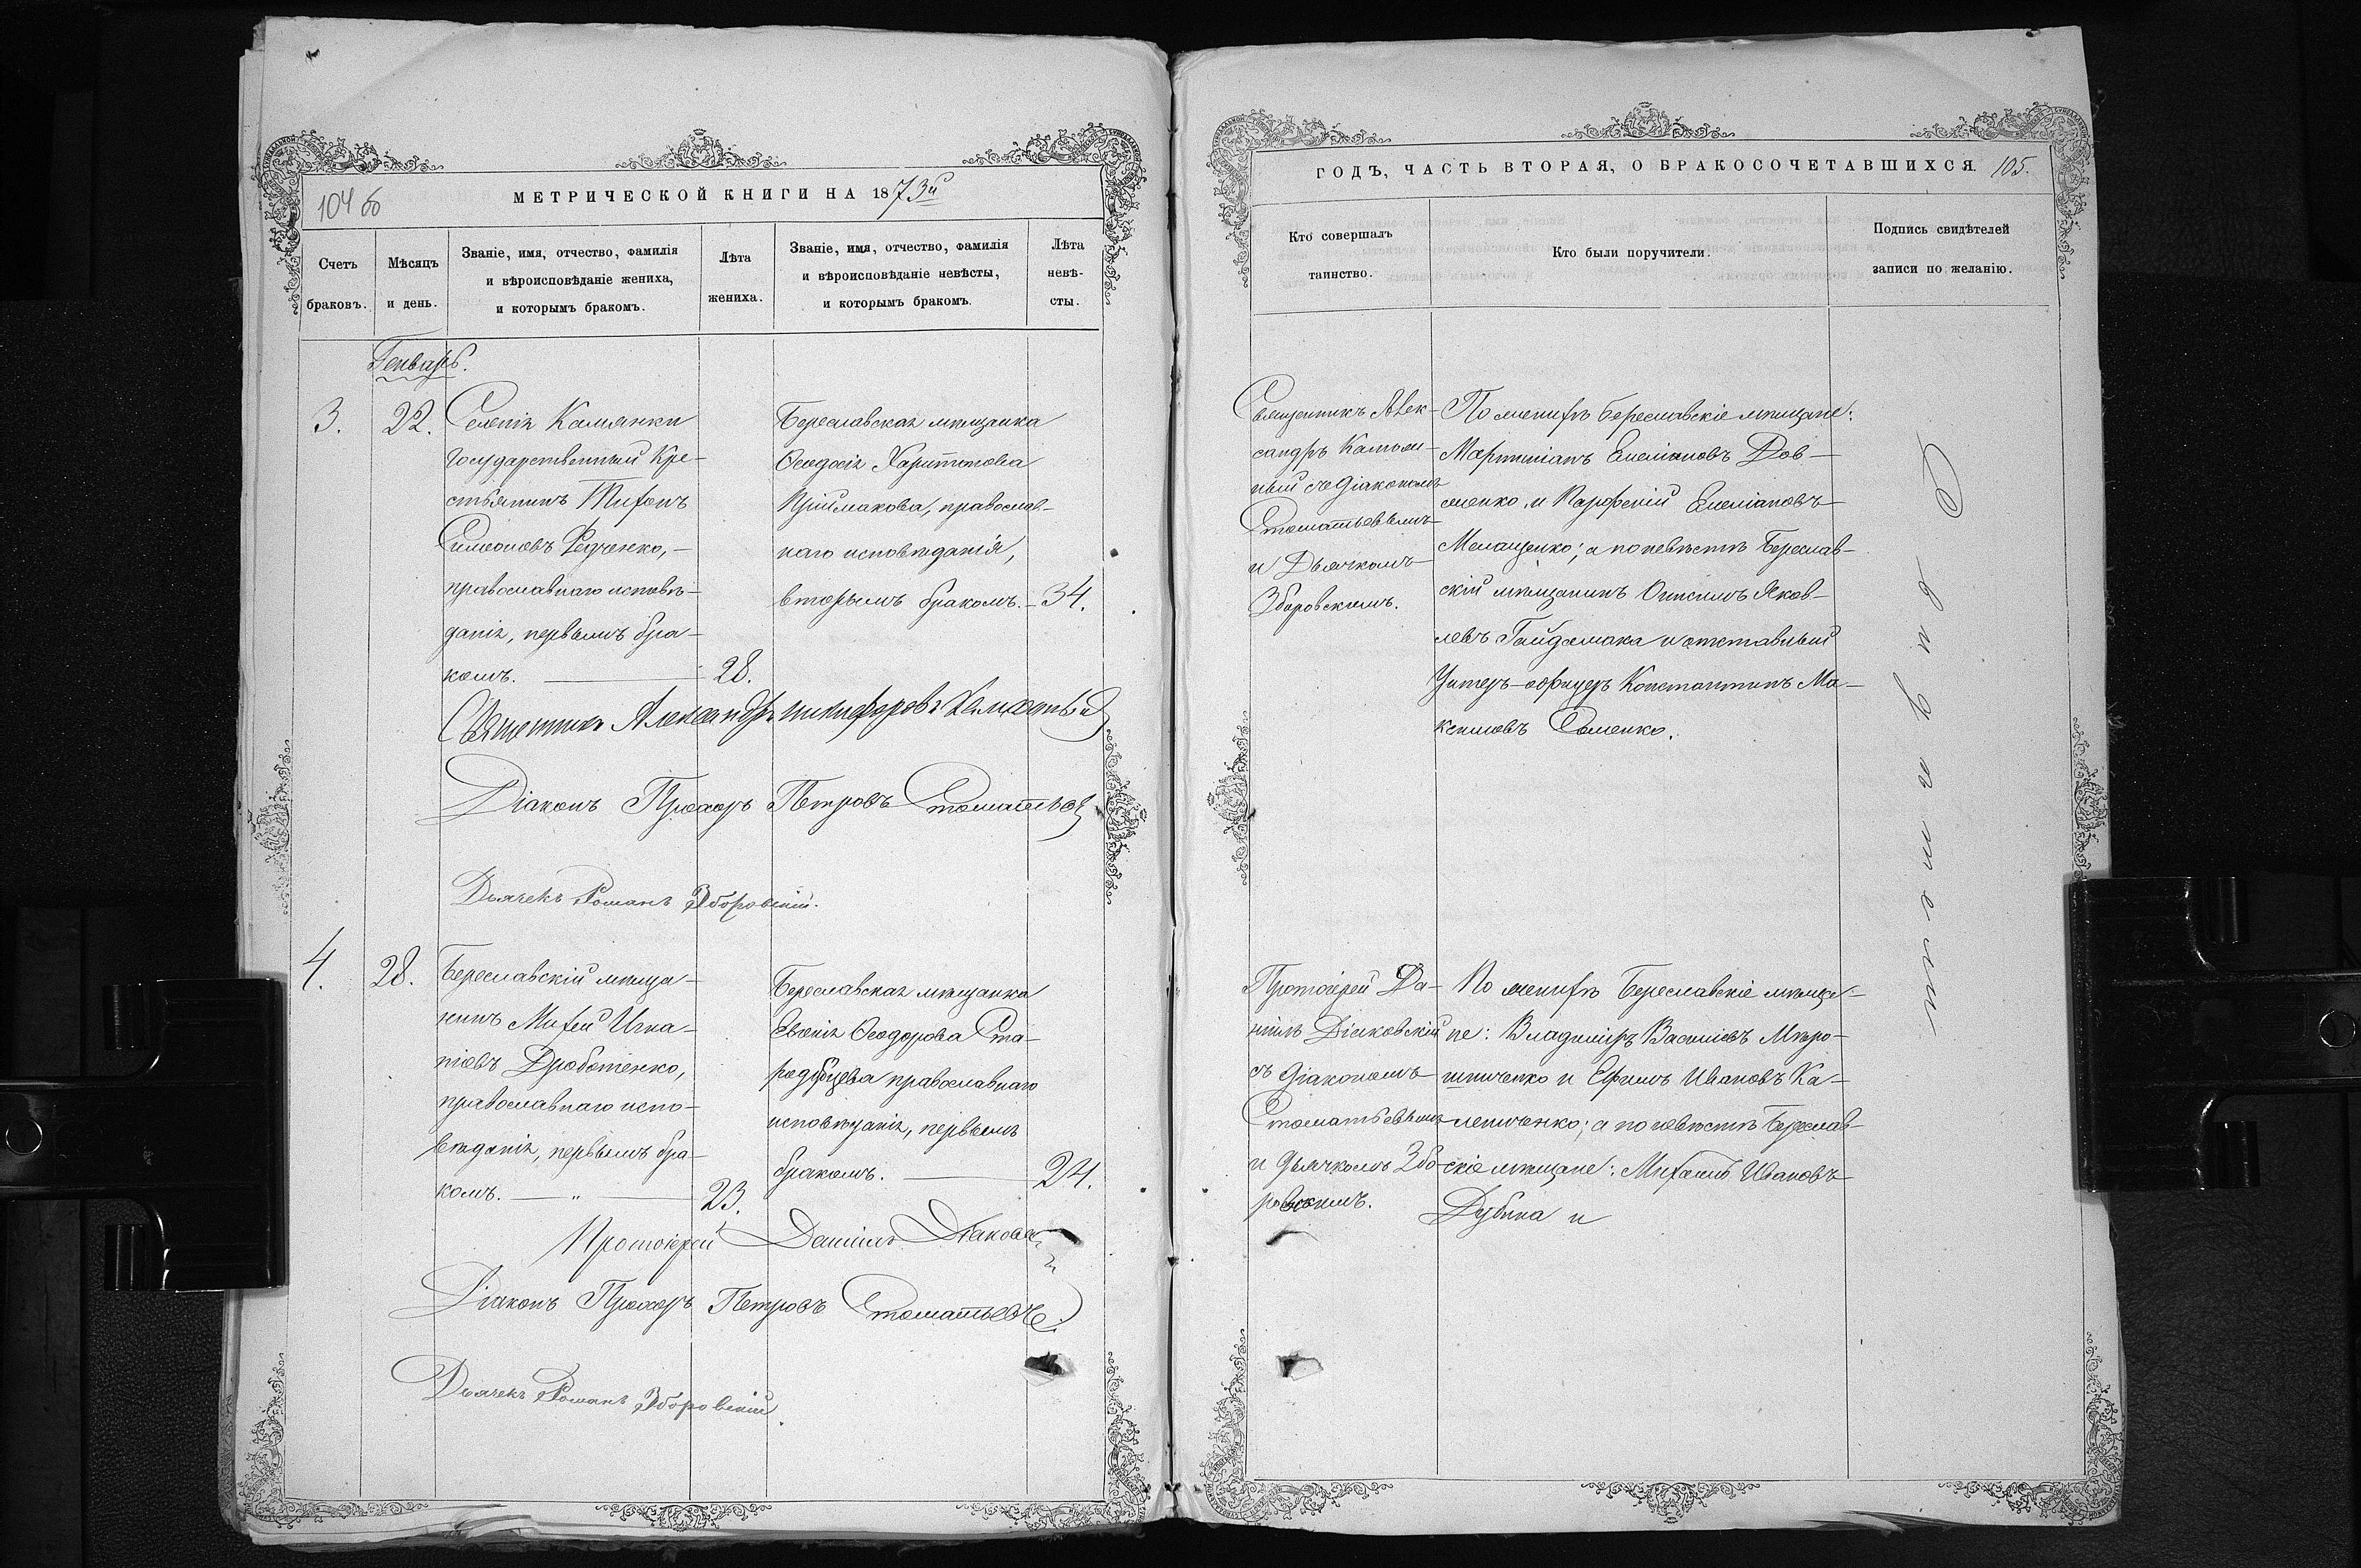 104 об
МЕТРИЧЕСКОЙ КНИГИ НА 1873й
Счетъ
браковъ.
Мѣсяцъ
и день.
Званіе, имя, отчество, фамилія
и вѣроисповѣданіе жениха,
и которымъ бракомъ.
Лѣта
жениха.
Званіе, имя, отчество, фамилія
и вѣроисповѣданіе невѣсты,
и которымъ бракомъ.
Лѣта
невѣ-
сты.
Генварь.
3.
22.
Селенія Камянки
государственный кре-
стьянинъ Тихонъ
Симеоновъ Федченко,
православнаго исповѣ-
данія, первымъ бра-
комъ.
28.
Береславская мѣщанка
Ѳеодосія Харитонова
Пріймакова, православ-
наго исповѣданія,
вторымъ бракомъ. 34.
Священникъ Александръ Никифоровъ
Діаконъ Прохоръ Петровъ Стоматьевъ
Дьячекъ Романъ Зборовскій.
4.
28.
Береславскій мѣща-
нинъ Михей Игна-
тіевъ Дроботенко,
православнаго испо-
вѣданія, первымъ бра-
комъ. — " —
23.
Береславская мѣщанка
Евгенія Ѳеодорова Ста-
родубцева православнаго
исповѣданія, первымъ
бракомъ. 24.
Протоіерей Даніилъ
Діаконъ Прохоръ Петровъ Стоматьевъ
Дьячекъ Романъ Зборовскій.
ГОДЪ, ЧАСТЬ ВТОРАЯ, О БРАКОСОЧЕТАВШИХСЯ. 105.
Кто совершалъ
таинство.
Кто были поручители.
Подпись свидѣтелей
записи по желанію.
Священникъ Алек-
сандръ
ный съ діакономъ
Стоматьевымъ
и Дьячкомъ
Зборовскимъ.
По женихѣ береславскіе мѣщане:
Мартиніанъ Емеліановъ Дов-
женко и Парфеній Емеліановъ
Мелащенко; а по невѣстѣ Береслав-
скій мѣщанинъ Онисимъ Яков-
левъ Гайдамака и отставный
Унтеръ-офицеръ Константинъ Ма-
ксимовъ Соменко.
Протоіерей Да-
ніилъ Діаковскій
съ діакономъ
Стоматьевымъ
и дьячкомъ Збо-
ровскимъ.
По женихѣ Береславскіе мѣща-
не: Владиміръ Василіевъ Миро-
шниченко и Ефимъ Ивановъ Ка-
лениченко; а по невѣстѣ Береслав-
скіе мѣщане: Михаилъ Ивановъ
Дубина и